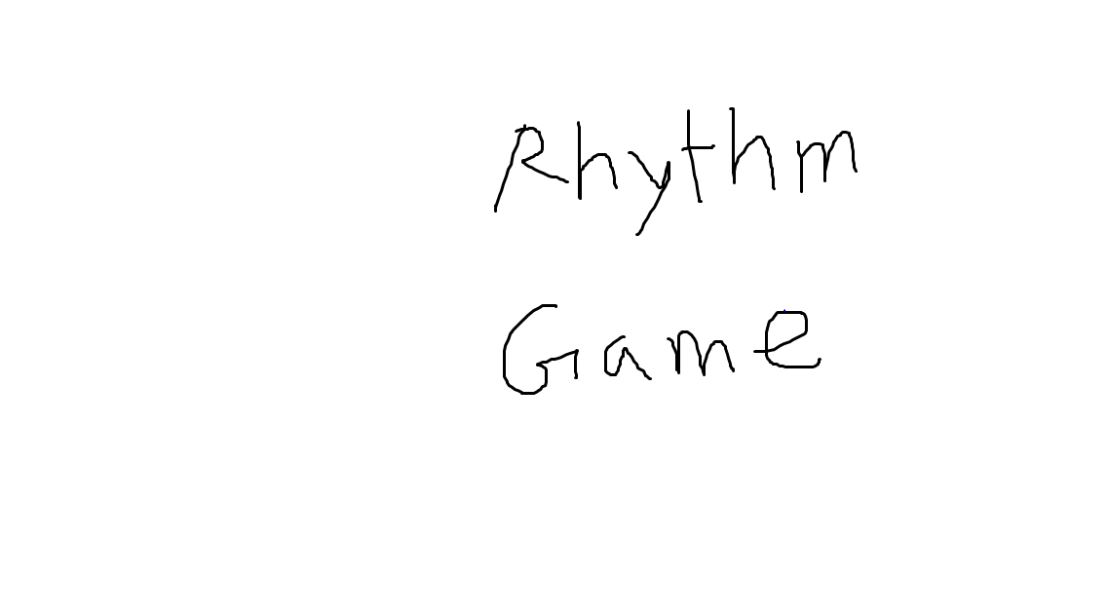 Rhythm
Game